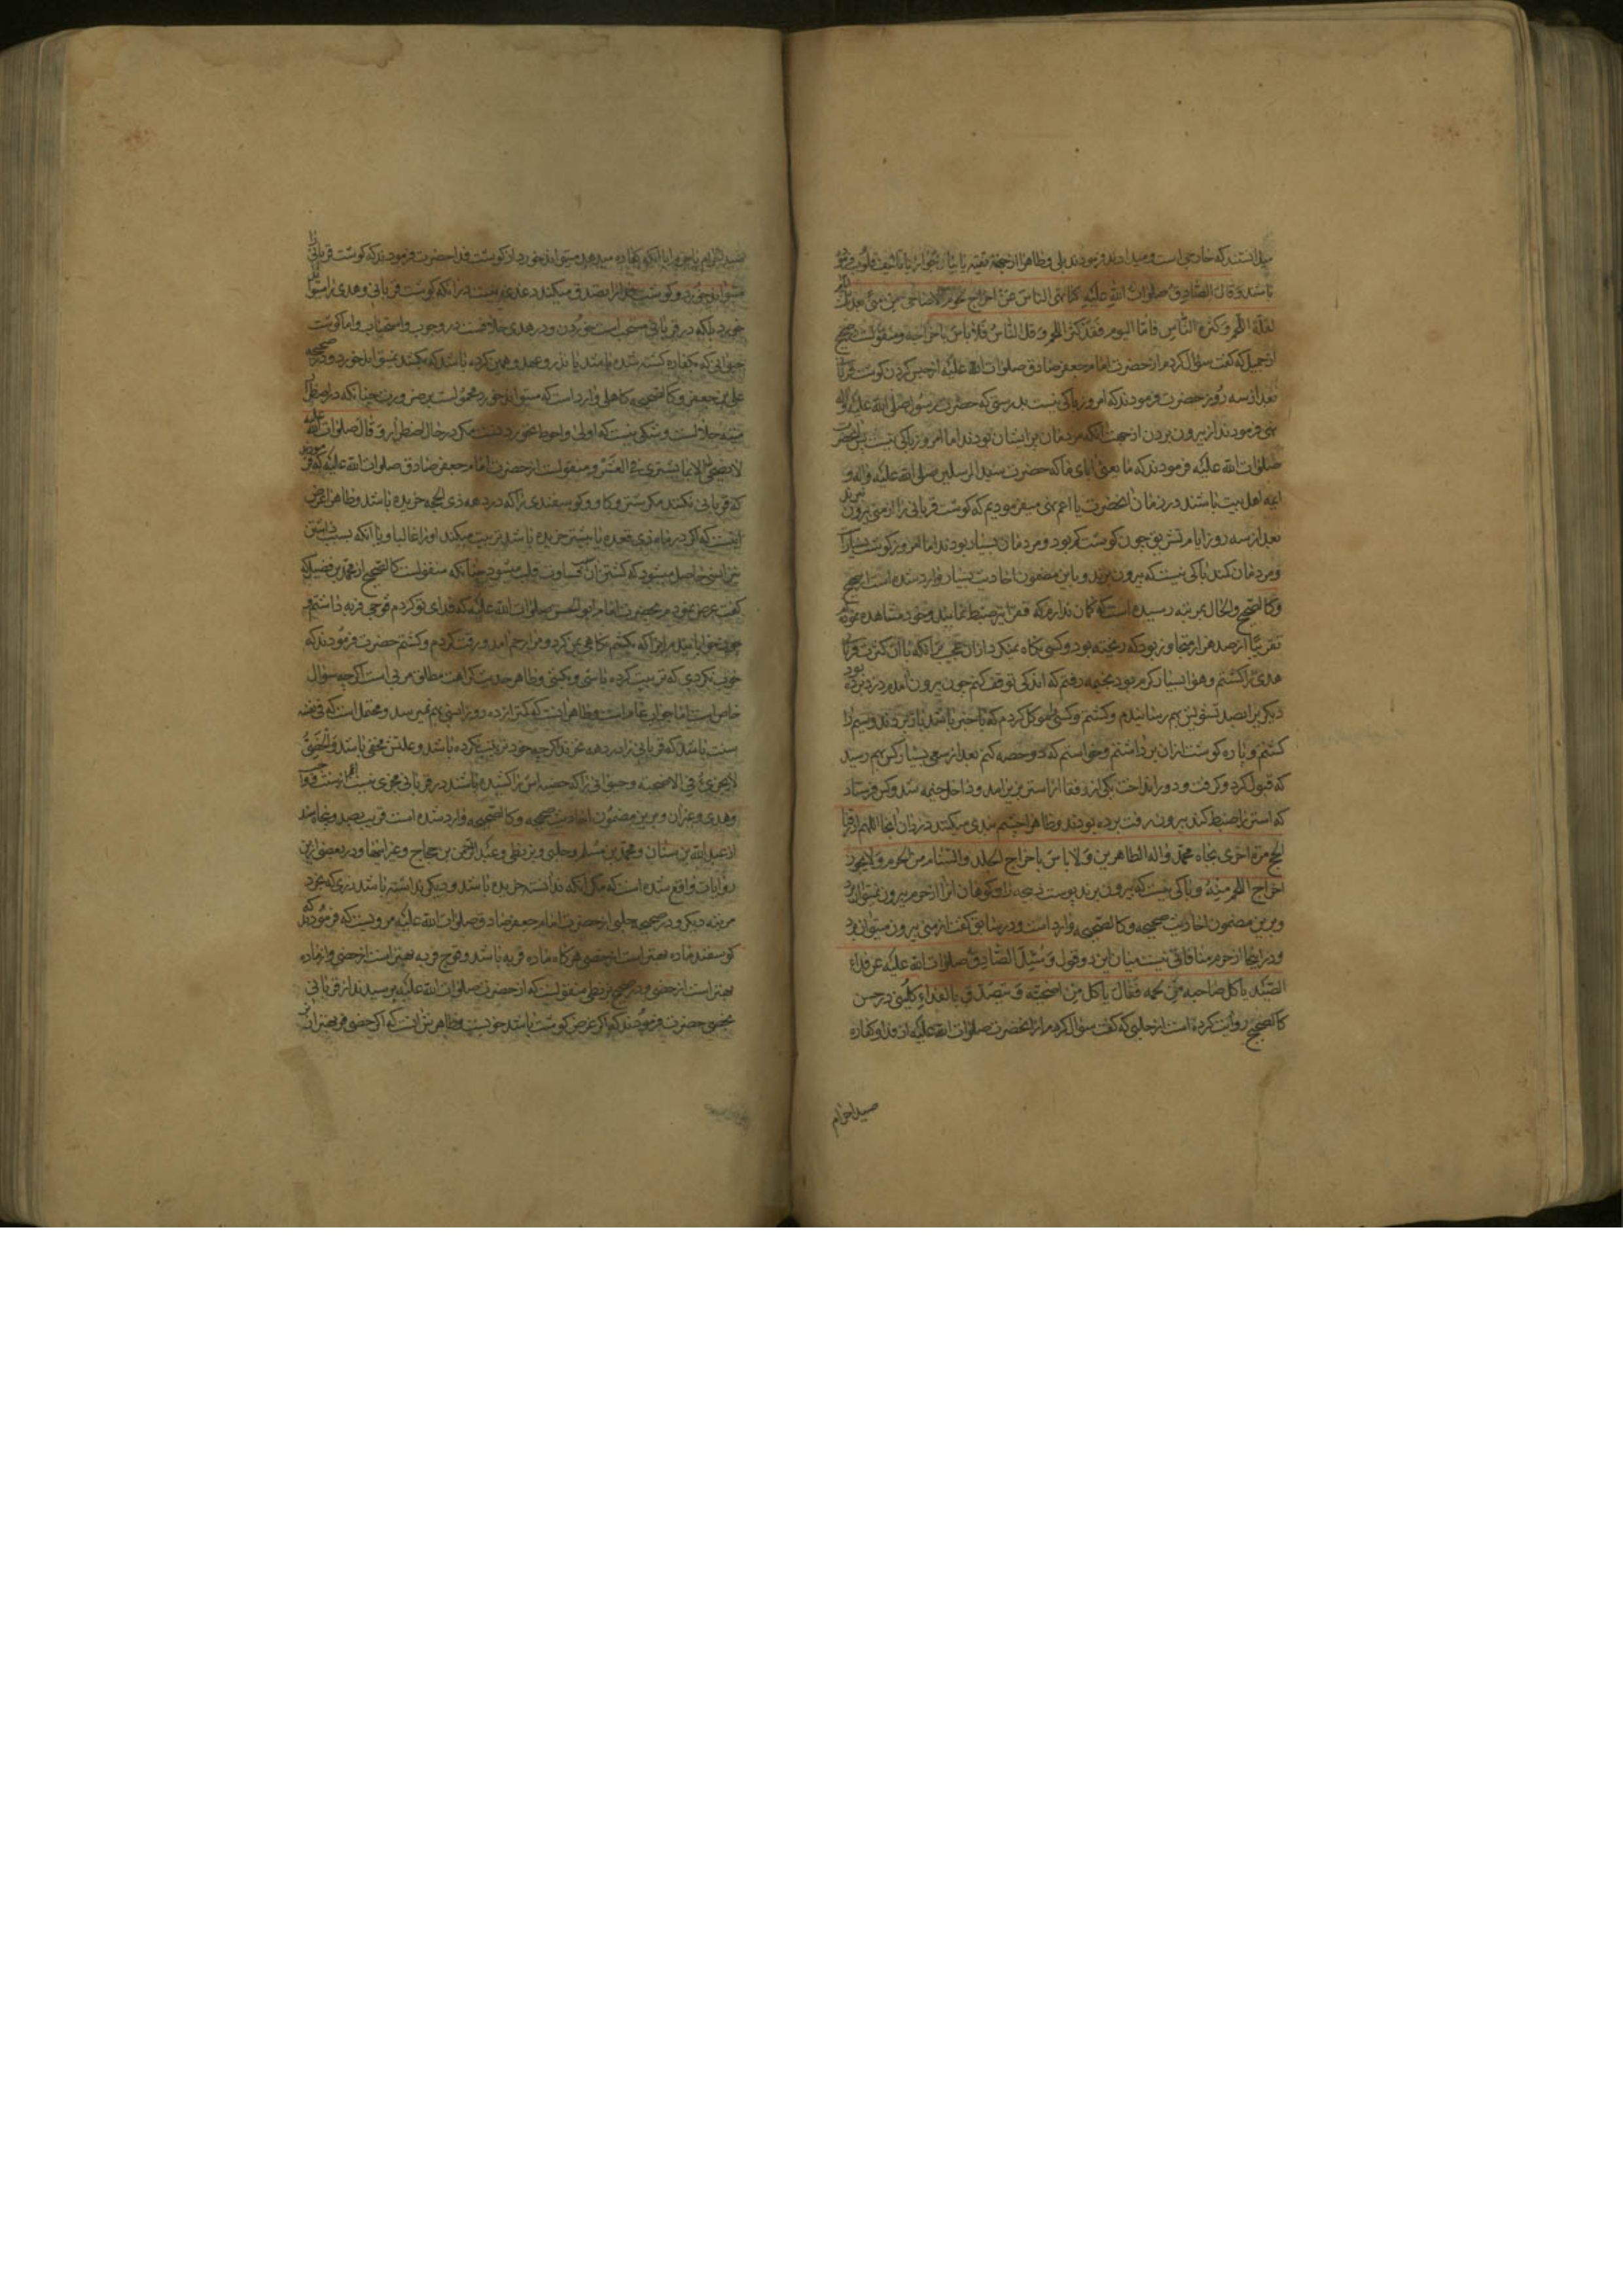 میدانستند که خارجی است و میدادند فرمودند بلی و ظاهرا از جهة تقیه یا بیان جواز یا تالیف قلوب فرموده
باشند و قال الصادق صلوات الله علیه کنا ننهی الناس عن اخراج لحوم الاضاحی من منی بعد ثلث
لقلة اللحم و کثرة الناس فاما الیوم فقد کثر اللحم و قل الناس فلا باس باخراجه و منقولست در صحیح
از جمیل که گفت سؤال کردم از حضرت امام جعفر صادق صلوات الله علیه از حبس کردن گوشت قربانی
بعد از سه روز حضرت فرمودند که امروز باکی نیست بدرستی که حضرت رسول صلی الله علیه و آله
نهی فرمودند از بیرون بردن از جهت آنکه مردمان پریشان بودند اما امروز باکی نیست پس حضرت
صلوات الله علیه فرمودند که ما یعنی ابای ما که حضرت سید المرسلین صلی الله علیه و اله و
ایمه اهل بیت باشند در زمان آنحضرت یا اعم نهی میفرمودیم که گوشت قربانی را از منی بیرون نبرند
بعد از سه روز ایام تشریق چون گوشت کم بود و مردمان بسیار بودند اما امروز گوشت بسیار است
و مردمان کمند باکی نیست که بیرون برند و باین مضمون احادیث بسیار وارد شده است صحیح
و کالصحیح و الحال بمرتبه رسیده است که کمان ندارم که فقرا نیز ضبط نمایند و خود مشاهده نمودم
تقریبا از صد هزار متجاوز بود که ریخته بود و کسی نکاه نمیکرد از آن عجب تر آنکه با آن کثرت قربانی
هدی را کشتم و هوا بسیار کرم بود بخیمه رفتم که اندکی توقف کنم چون بیرون آمدم دزد برده بود
دیکری را بصد تشویش بهم رسانیدم و کشتم و کسی را موکل کردم که با خبر باشد باز بردند و سیم را
کشتم و پاره کوشت از آن برداشتم و خواستم که دو حصه کنم بعد از سعی بسیار کس بهم رسید
که قبول کرد و گرفت و دور انداخت یکی از رفقا از استر بزیر امد و داخل خیمه شد و کس فرستاد
که استر را ضبط کند بیرون رفت برده بودند و ظاهرا چشم بندی میکنند دزدان آنجا اللهم ارزقنا
الحج مرة اخری بجاه محمد و اله الطاهرین و لا باس باخراج الجلد و السنام من الحرم و لا یجوز
اخراج اللحم منه و باکی نیست که بیرون برند پوست ذبیحه را و کوهان آنرا از حرم بیرون نمیتوان برد
و برین مضمون احادیث صحیحه و کالصحیحه وارد است و در سابق گفت از منی بیرون میتوان برد
و در اینجا از حرم منافاتی نیست میان این دو قول و سئل الصادق صلوات الله علیه عن فداء
الصید یاکل صاحبه من لحمه فقال یاکل من اضحیته و یتصدق بالفداء کلینی در حسن
کالصحیح روایت کرده است از حلبی که گفت سؤال کردم از آنحضرت صلوات الله علیه از فدا و کفاره
صید احرام
صید احرام
میتواند خورد و گوشت فدا را تصدق میکند دغدغه نیست در آنکه گوشت قربانی و هدی را میتوان
خورد بلکه در قربانی مستحب است خوردن و در هدی خلافست در وجوب و استحباب و اما گوشت
حیوانی که بکفاره کشته شده باشد یا نذر و عهد و یمین کرده باشد که بکشد نمیتواند خورد و در صحیحه
علی بن جعفر و کالصحیحه کاهلی وارد است که میتواند خورد محمولست بر ضرورت چنانکه در اضطرار
میته حلالست و شکی نیست که اولی و احوط نخوردنست مکر در حال اضطرار و قال صلوات الله علیه
لا یضحی الا بما یشتری فی العشر و منقولست از حضرت امام جعفر صادق صلوات الله علیه که فرمودند
که قربانی نکنند مکر شتر و گاو و گوسفندی را که در دهه ذی الحجه خریده باشند و ظاهرا غرض
اینست که اگر در ماه ذی قعده یا پیشتر خریده باشد تربیت میکند او را غالبا و یا آنکه بسبب داشتن
نیز انسی حاصل میشود که کشتن آن قساوت قلب میشود چنانکه منقولست کالصحیح از محمد بن فضیل که
گفت عرض نمودم بحضرت امام ابو الحسن صلوات الله علیه که فدای تو کردم قوچی فربه داشتم
چون خوابانیدم او را که بکشم نکاهی بمن کرد و مرا رحم آمد و رقت کردم و کشتم حضرت فرمودند که
خوب نکردی که تربیت کرده باشی و بکشی و ظاهر حدیث کراهت مطلق مربی است اگر چه سؤال
خاص است اما جواب عام است و ظاهر اینست که کمتر از ده روز انسی بهم نمیرسد و محتمل است که فی نفسه
سنت باشد که قربانی را در دهه بخرند اگر چه خود تربیت کرده باشد و علتش مخفی باشد و الخصی
لا یجزی فی الاضحیة و حیوانی را که خصیه اش را کشیده باشند در قربانی مجزی نیست اعم از سنت و واجب
و هدی و غیر آن و برین مضمون احادیث صحیحه و کالصحیحه وارد شده است قریب بصد و پنجاه سند
از عبد الله بن سنان و محمد بن مسلم و حلبی و بزنطی و عبد الرحمن بن حجاج و غیر اینها و در بعضی ازین
روایات واقع شده است که مکر آنکه ندانسته خریده باشد و دیکر نداشته باشد زری که بخرد
مرتبه دیکر و در صحیحه حلبی از حضرت امام جعفر صادق صلوات الله علیه مرویست که فرمودند که
گوسفند ماده بهتر است از خصی هرگاه ماده فربه باشد و قوچ فربه بهتر است از خصی و از ماده
بهتر است از خصی و در صحیح بزنطی منقولست که از حضرت صلوات الله علیه پرسیدند از قربانی
بخصی حضرت فرمودند که اگر غرض گوشت باشد خوبست و ظاهرش آنست که اگر خصی فربهتر از